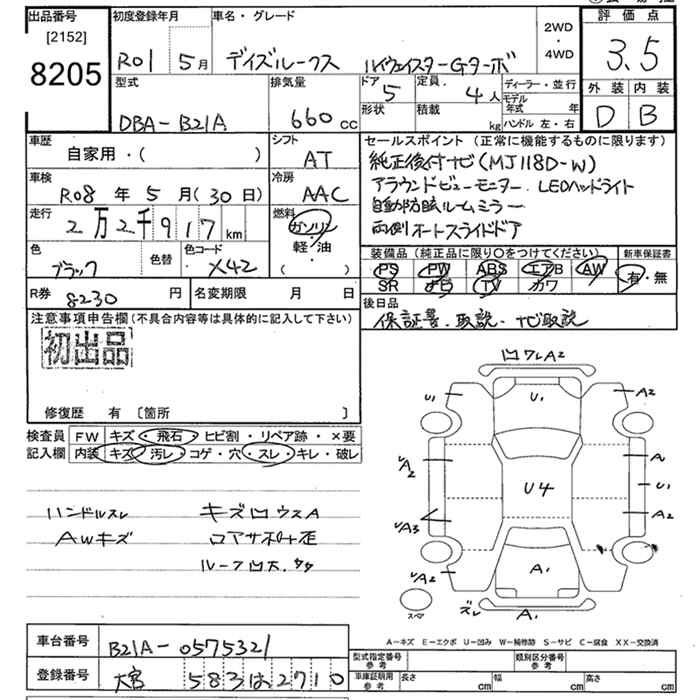 出品番号 初度登録年月 車名・グレード 2WD・4WD 評価点
[2152]
8205
R01 5月 デイズルークス ハイウェイスターGターボ 3.5
型式 排気量 ドア 定員 ディーラー・並行 外装 内装
DBA-B21A 660cc 5 4人 モデル年式 年 D B
形状 積載 kg ハンドル 左・右
車歴 シフト セールスポイント(正常に機能するものに限ります)
自家用・( ) AT 純正後付ナビ(MJ118D-W)
車検 冷房 アラウンドビューモニター. LEDヘッドライト
R08年5月(30日) AAC 自動防眩ルームミラー
走行 燃料 両側オートスライドドア
2万2千917km ガソリン
軽・油
( )
色 色替 色コード 装備品(純正品に限り○をつけてください) 新車保証書
ブラック X42 PS PW ABS エアB AW 有・無
SR ナビ TV カワ
R券 8230円 名変期限 月 日 後日品
注意事項申告欄(不具合内容等は具体的に記入して下さい) 保証書.取説.ナビ取説
初出品
修復歴 有 [箇所 ]
検査員記入欄 FW キズ・飛石・ヒビ割・リペア跡・×要
内装 キズ・汚レ・コゲ・穴・スレ・キレ・破レ
ハンドルスレ キズ凹ウスA
AWキズ コアサポート歪
ルーフ凹大.
凹ワレA2
U1 U1 A2
A2 A
U4 U1
A3 A2
A2 A1
スペア ズレ A1
A-キズ E-エクボ U-凹み W-補修跡 S-サビ C-腐食 XX-交換済
車台番号 B21A-0575321 型式指定番号 参考 類別区分番号 参考
登録番号 大宮 583は2710 車庫証明用 参考 長さ cm 幅 cm 高さ cm